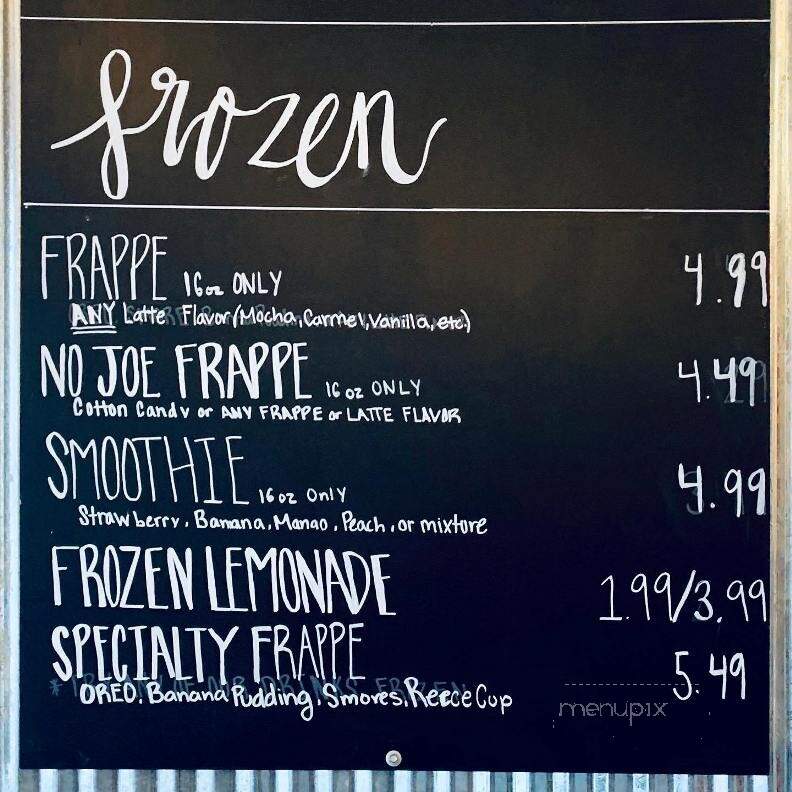 frozen
FRAPPE 16oz ONLY 4.99
ANY Latte Flavor (Mocha, Carmel, Vanilla, etc)
NO JOE FRAPPE 16 oz ONLY 4.49
Cotton Candy or ANY FRAPPE or LATTE FLAVOR
SMOOTHIE 16oz Only 4.99
Strawberry, Banana, Mango, Peach, or mixture
FROZEN LEMONADE 1.99/3.99
SPECIALTY FRAPPE 5.49
OREO, Banana Pudding, Smores, Reece Cup
menupix